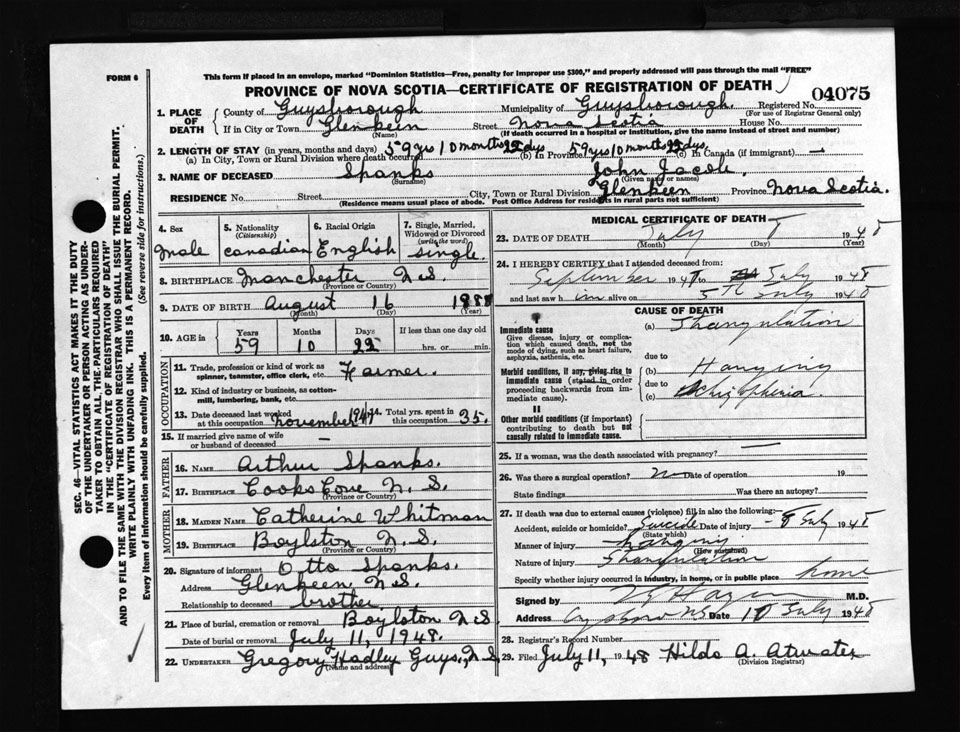 This form if placed in an envelope, marked "Dominion Statistics—Free, penalty for improper use $300," and properly addressed will pass through the mail "FREE"
FORM 6
PROVINCE OF NOVA SCOTIA—CERTIFICATE OF REGISTRATION OF DEATH
04075
1. PLACE OF DEATH
County of Guysborough Municipality of Guysborough. Registered No.
(For use of Registrar General only)
If in City or Town Glenkeen Street Nova Scotia House No.
(Name) (If death occurred in a hospital or institution, give the name instead of street and number)
2. LENGTH OF STAY (in years, months and days) 59 yrs 10 months 22 dys 59 yrs 10 months 22 dys.
(a) In City, Town or Rural Division where death occurred (b) In Province (c) In Canada (if immigrant) —
3. NAME OF DECEASED Spanks John Jacob.
(Surname) (Given name or names)
RESIDENCE No. Street City, Town or Rural Division Glenkeen Province Nova Scotia.
(Residence means usual place of abode. Post Office Address for residents in rural parts not sufficient)
4. Sex
male
5. Nationality
(Citizenship)
Canadian
6. Racial Origin
English
7. Single, Married, Widowed or Divorced
(write the word)
Single.
8. BIRTHPLACE Manchester N.S.
(Province or Country)
9. DATE OF BIRTH August 16 1888
(Month) (Day) (Year)
10. AGE in Years Months Days If less than one day old
59 10 22 hrs. or min.
OCCUPATION
11. Trade, profession or kind of work as spinner, teamster, office clerk, etc. Farmer.
12. Kind of industry or business, as cotton-mill, lumbering, bank, etc.
13. Date deceased last worked at this occupation November 1947 Total yrs. spent in this occupation 35.
15. If married give name of wife or husband of deceased —
FATHER
16. NAME Arthur Spanks.
17. BIRTHPLACE Cooks Cove N.S.
(Province or Country)
MOTHER
18. MAIDEN NAME Catherine Whitman
19. BIRTHPLACE Boylston N.S.
(Province or Country)
20. Signature of informant Otto Spanks.
Address Glenkeen, N.S.
Relationship to deceased brother.
21. Place of burial, cremation or removal Boylston N.S.
Date of burial or removal July 11, 1948.
22. UNDERTAKER Gregory Hadley Guys., N.S.
(Name and address)
MEDICAL CERTIFICATE OF DEATH
23. DATE OF DEATH July 8 1948
(Month) (Day) (Year)
24. I HEREBY CERTIFY that I attended deceased from:
September 194 July 1948
and last saw him alive on 5th July 1948
CAUSE OF DEATH
Immediate cause
Give disease, injury or complication which caused death, not the mode of dying, such as heart failure, asphyxia, asthenia, etc.
(a) Strangulation
due to
Morbid conditions, if any, giving rise to immediate cause (stated in order proceeding backwards from immediate cause).
(b) Hanging
due to
(c) Schizophrenia.
II
Other morbid conditions (if important) contributing to death but not causally related to immediate cause.
25. If a woman, was the death associated with pregnancy? —
26. Was there a surgical operation? no Date of operation 19
State findings Was there an autopsy?
27. If death was due to external causes (violence) fill in also the following:
Accident, suicide or homicide? Suicide Date of injury - 8 July 1948
(State which)
Manner of injury hanging
(How sustained)
Nature of injury Strangulation
Specify whether injury occurred in industry, in home, or in public place home
Signed by M.D.
Address Guysboro NS Date 10 July 1948
28. Registrar's Record Number
29. Filed July 11, 1948 Hilda A. Atwater
(Division Registrar)
SEC. 46—VITAL STATISTICS ACT MAKES IT THE DUTY
OF THE UNDERTAKER OR PERSON ACTING AS UNDER-
TAKER TO OBTAIN ALL THE PARTICULARS REQUIRED
IN THE "CERTIFICATE OF REGISTRATION OF DEATH"
AND TO FILE THE SAME WITH THE DIVISION REGISTRAR WHO SHALL ISSUE THE BURIAL PERMIT.
WRITE PLAINLY WITH UNFADING INK. THIS IS A PERMANENT RECORD.
Every item of information should be carefully supplied. (See reverse side for instructions.)